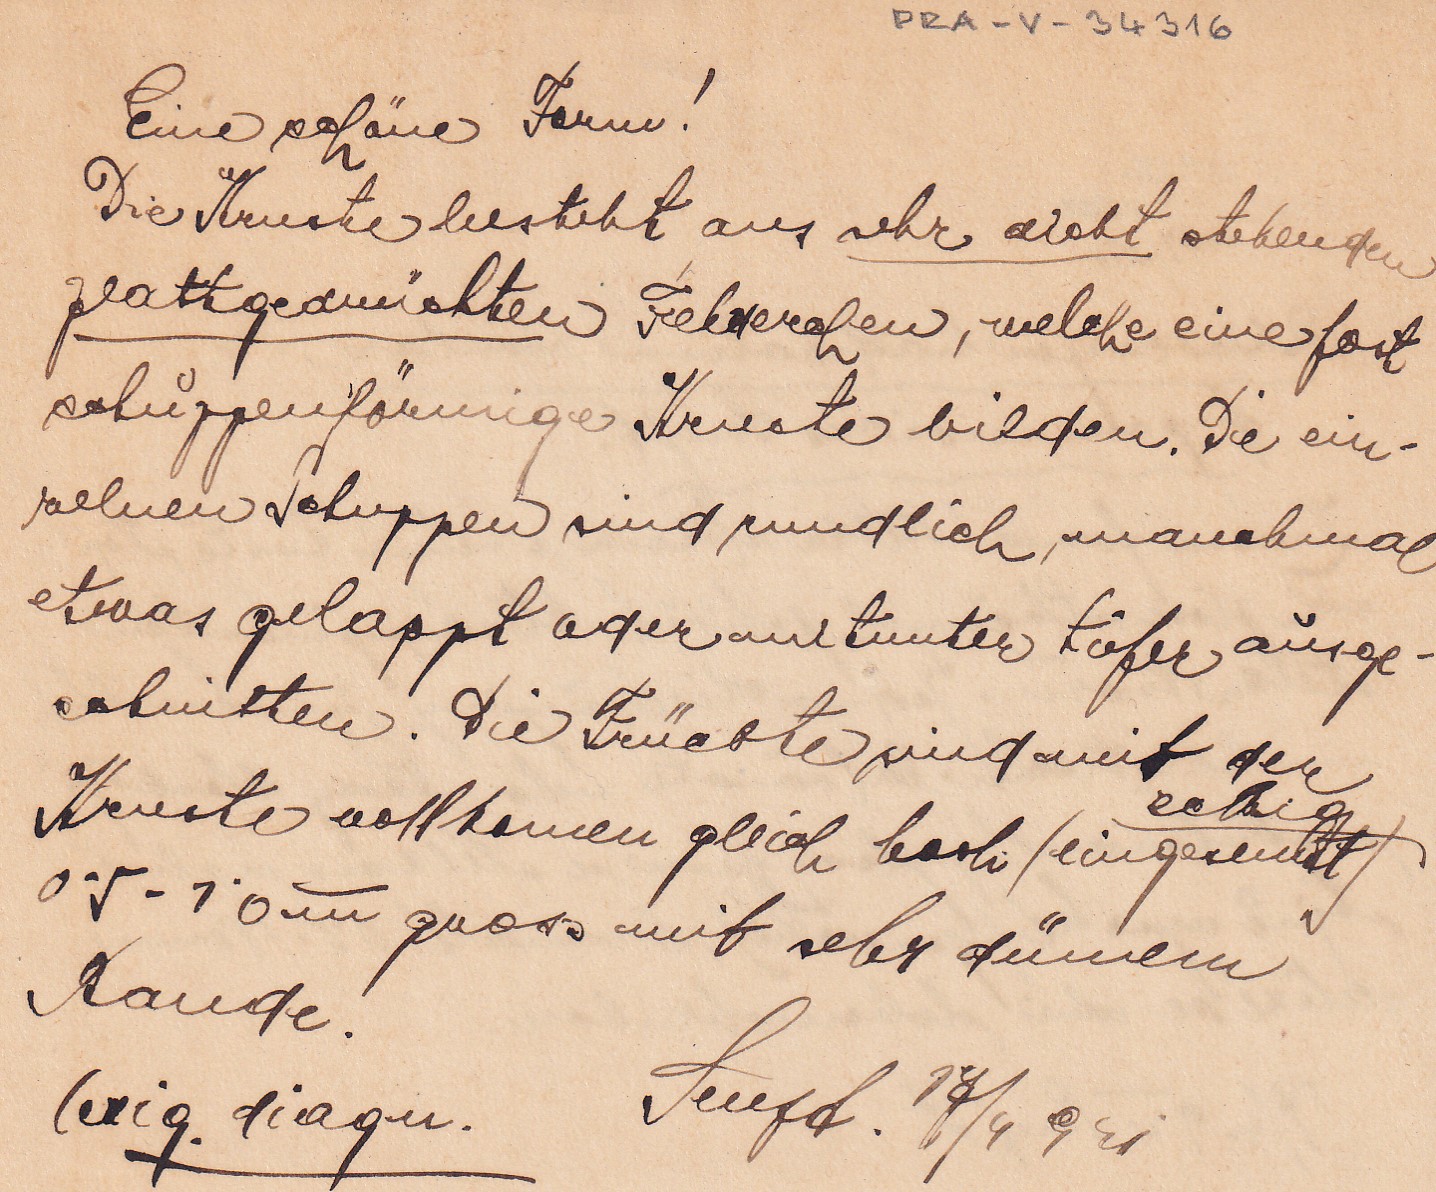 PRA-V-34316
Eine schöne Form!
Die Kruste besteht aus sehr dicht stehenden
plattgedrückten Felderchen, welche eine fast
schuppenförmige Kruste bilden. Die ein-
zelnen Schuppen sind rundlich, manchmal
etwas gelappt oder mitunter tiefer ausge-
schnitten. Die Früchte sind mit der
Kruste vollkomen gleich hoch (eingesenkt)
0·5-1·0mm gross mit sehr dünnem
Rande.
(orig. diagn.